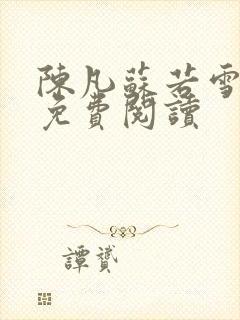 陳凡蘇若雪
免費閱讀
譚贇